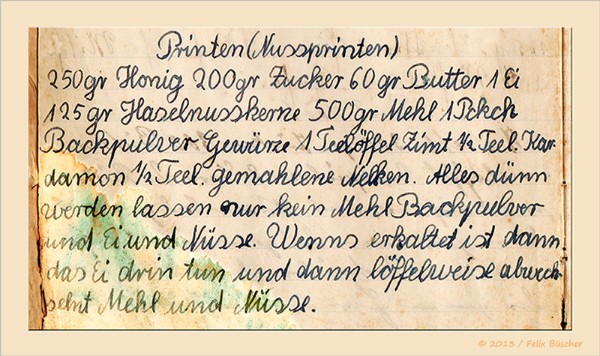 Printen (Nussprinten)
250gr Honig 200gr Zucker 60gr Butter 1 Ei
125gr Haselnusskerne 500gr Mehl 1 Pckch
Backpulver Gewürze 1 Teelöffel Zimt ½ Teel. Kar-
damon ½ Teel. gemahlene Nelken. Alles dünn
werden lassen nur kein Mehl Backpulver
und Ei und Nüsse. Wenns erkaltet ist dann
das Ei drin tun und dann löffelweise abwech
selnt Mehl und Nüsse.
© 2013 / Felix Büscher